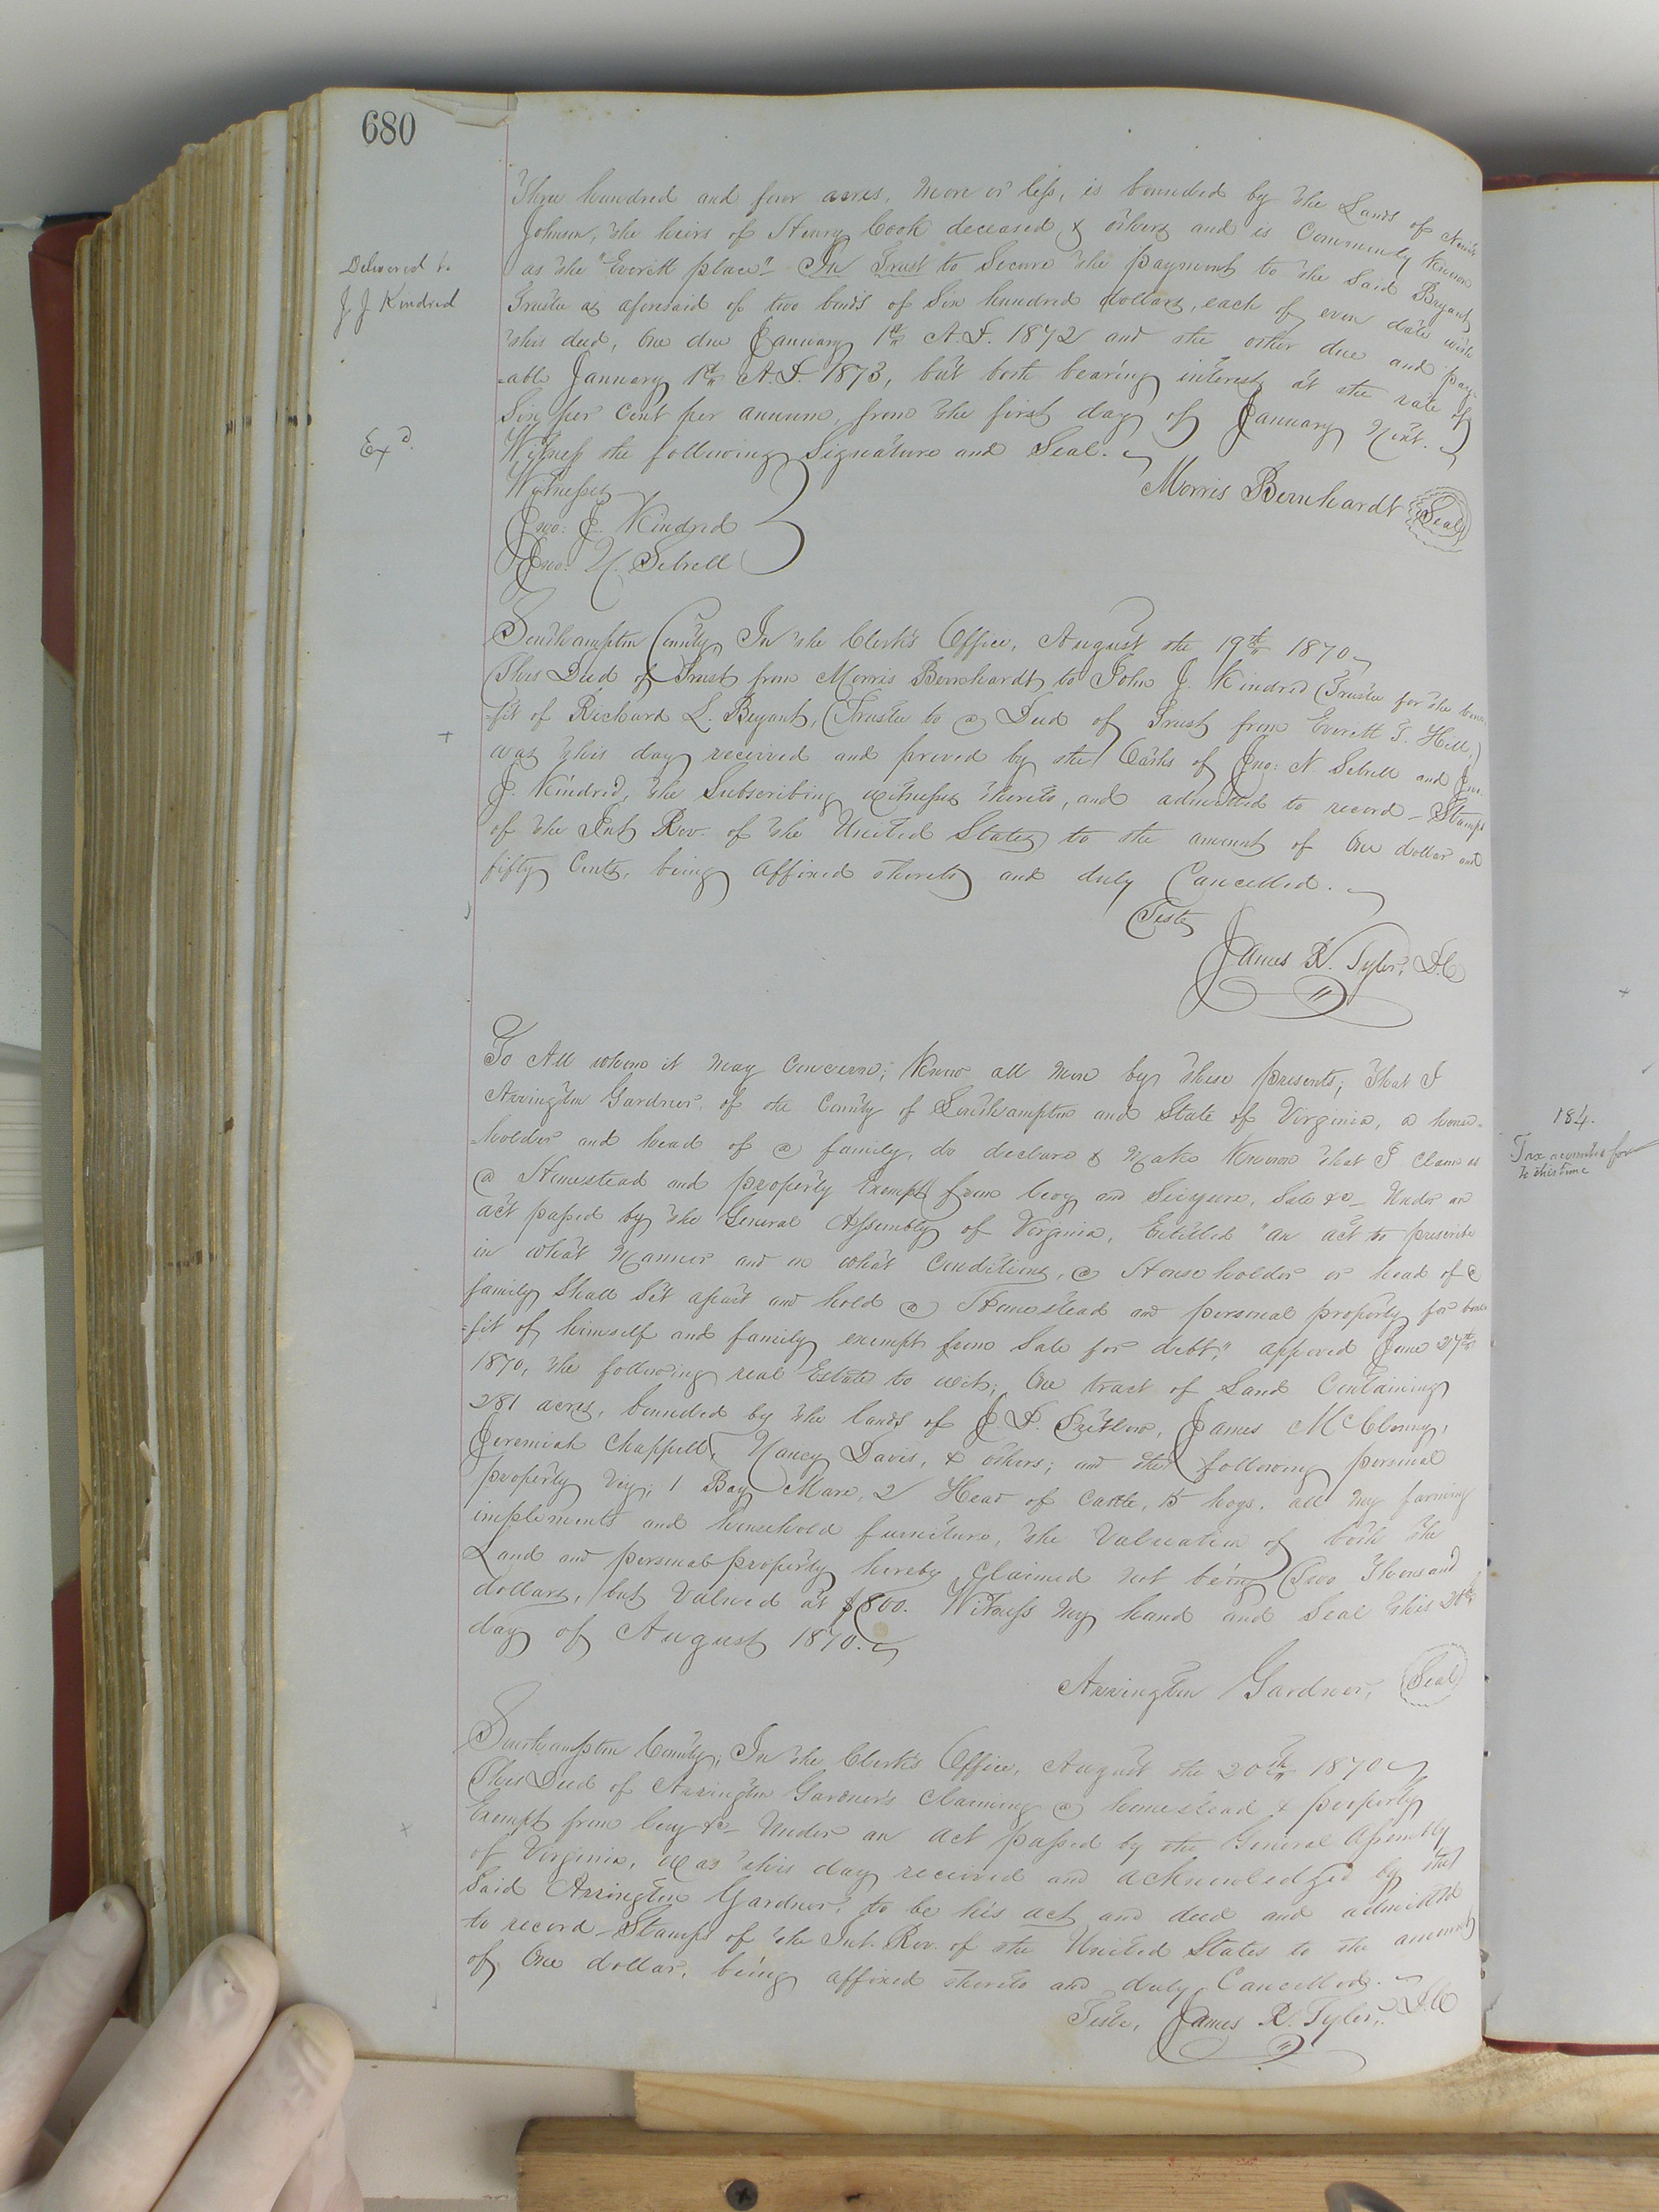 680
Three hundred and four acres, more or less, is bounded by the Lands of
Johnson, the heirs of Henry Cook deceased & others and is Commonly Known
as the "Everett place" In Trust to Secure the payment to the Said Bryant,
Delivered to
J. J. Kindred
Trustee as aforesaid of two bonds of Six hundred dollars, each of even date with
this deed, One due January 1st A.D. 1872 and the other due and pay-
able January 1st A.D. 1873, but both bearing interest at the rate of
Six per Cent per annum, from the first day of January Next.
Exd.
Witness the following Signature and Seal.
Morris Bernhardt Seal
Witnesses
Jno: J. Kindred
Jno: N. Sebrell
Southampton County, In the Clerk's Office, August the 19th 1870
This Deed of Trust from Morris Bernhardt to John J. Kindred (Trustee for the bene-
fit of Richard L. Bryant, (Trustee to a Deed of Trust from Everitt T. Hill,)
was this day received and proved by the Oaths of Jno: N Sebrell and Jno.
J. Kindred, the Subscribing witnesses thereto, and admitted to record – Stamps
of the Int Rev. of the United States to the amount of One dollar and
fifty Cents, being affixed thereto and duly Cancelled.
Teste
James R. Tyler, D.C
To All whom it may Concern; Know all men by these presents; that I
Arrington Gardner, of the County of Southampton and State of Virginia, a house-
holder and head of a family, do declare & make Known that I Claim as
a Homestead and property Exempt from levy and Seizure, Sale &c – Under an
act passed by the General Assembly of Virginia, Entitled "an act to prescribe
in what manner and on what Conditions, a House holder or head of a
family Shall Set apart and hold a Homestead and personal property for bene-
fit of himself and family exempt from Sale for debt," approved June 27th
1870, the following real Estate to wit; One tract of Land Containing
281 acres, bounded by the lands of J. D. Pretlow, James McClenny,
Jeremiah Chappell, Nancy Davis, & others; and the following personal
property Viz; 1 Bay Mare, 2 Head of Cattle, 15 hogs. all my farming
implements and household furniture, the Valuation of both the
Land and personal property hereby Claimed not being Two Thousand
dollars, but Valued at $800. Witness my hand and Seal this 20th
day of August 1870.
Arrington Gardner, Seal
Southampton County, In the Clerk's Office, August the 20th 1870
This Deed of Arrington Gardner's Claiming a homestead & property
Exempt from levy &c – Under an act passed by the General Assembly
of Virginia, was this day received and acknowledged by the
Said Arrington Gardner, to be his act and deed and admitted
to record – Stamps of the Int. Rev. of the United States to the amount
of One dollar, being affixed thereto and duly Cancelled.
Teste, James R. Tyler, D.C
184.
Tax accounted for
to this time